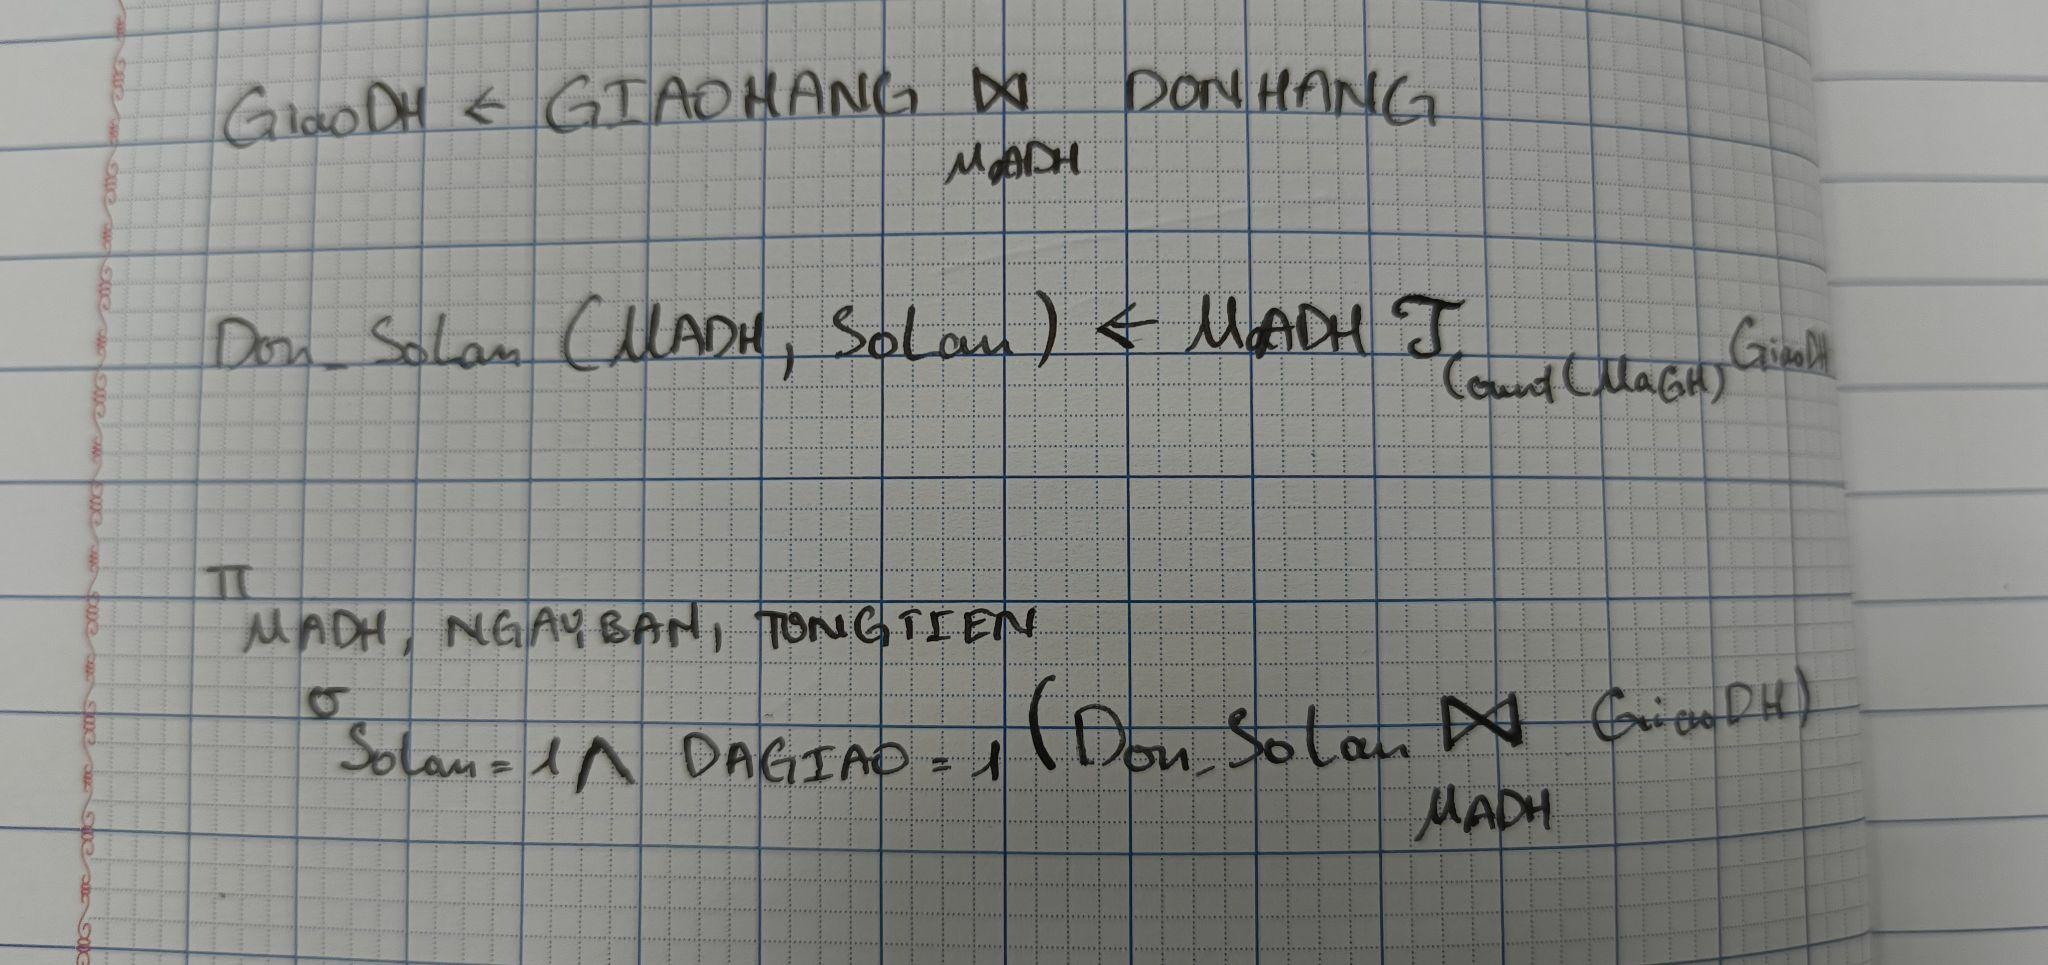 GiaoDH ← GIAOHANG ⋈ DONHANG
MaDH
Don_Solan (MADH, Solan) ← MaDH ℑ Count(MaGH) GiaoDH
π
MADH, NGAYBAN, TONGTIEN
σ
Solan = 1 ∧ DAGIAO = 1 (Don_Solan ⋈ GiaoDH)
MADH